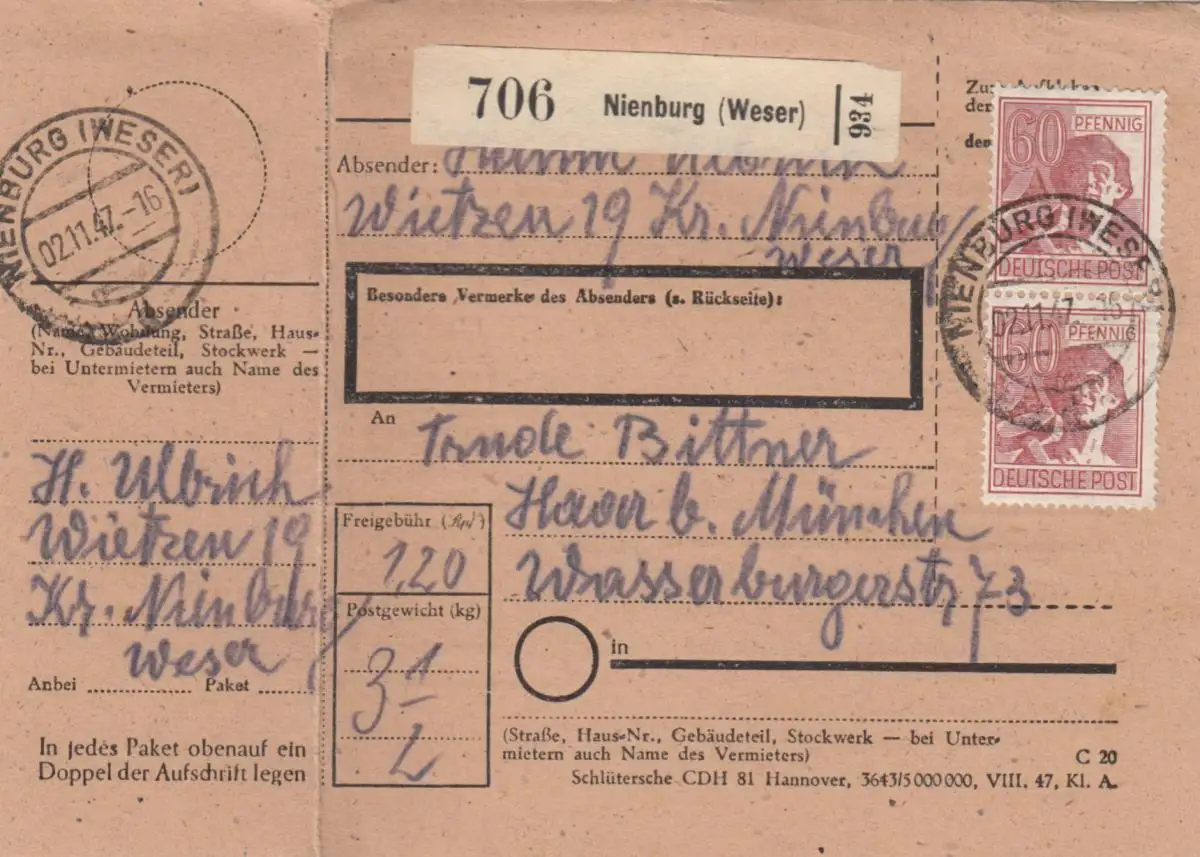 NIENBURG (WESER)
02.11.47.-16
Absender
(Name, Wohnung, Straße, Haus-
Nr., Gebäudeteil, Stockwerk —
bei Untermietern auch Name des
Vermieters)
H. Ulbrich
Wietzen 19
Kr. Nienburg
Weser
Anbei Paket
In jedes Paket obenauf ein
Doppel der Aufschrift legen
706 Nienburg (Weser) 934
Absender:
Wietzen 19 Kr. Nienburg
Weser
Besondere Vermerke des Absenders (s. Rückseite):
An Trude Bittner
Haar b. München
Wasserburgerstr 73
in
Freigebühr
1,20
Postgewicht (kg)
3 1/2
(Straße, Haus-Nr., Gebäudeteil, Stockwerk — bei Unter-
mietern auch Name des Vermieters)
C 20
Schlütersche CDH 81 Hannover, 3643/5 000 000, VIII. 47, Kl. A.
der
60 PFENNIG
DEUTSCHE POST
NIENBURG (WESER)
02.11.47.-16
60 PFENNIG
DEUTSCHE POST